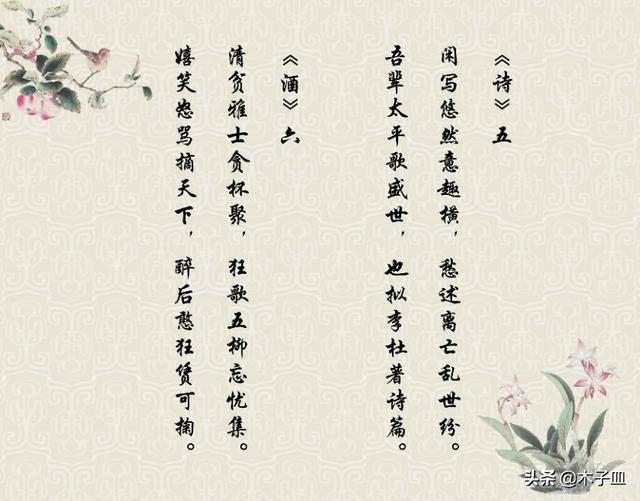 《诗》五
闲写悠然意趣横，愁述离亡乱世纷。
吾辈太平歌盛世，也拟李杜著诗篇。
《酒》六
清贫雅士贪杯聚，狂歌五柳忘忧集。
嬉笑怒骂摘天下，醉后憨狂赁可掬。
头条 @木子皿